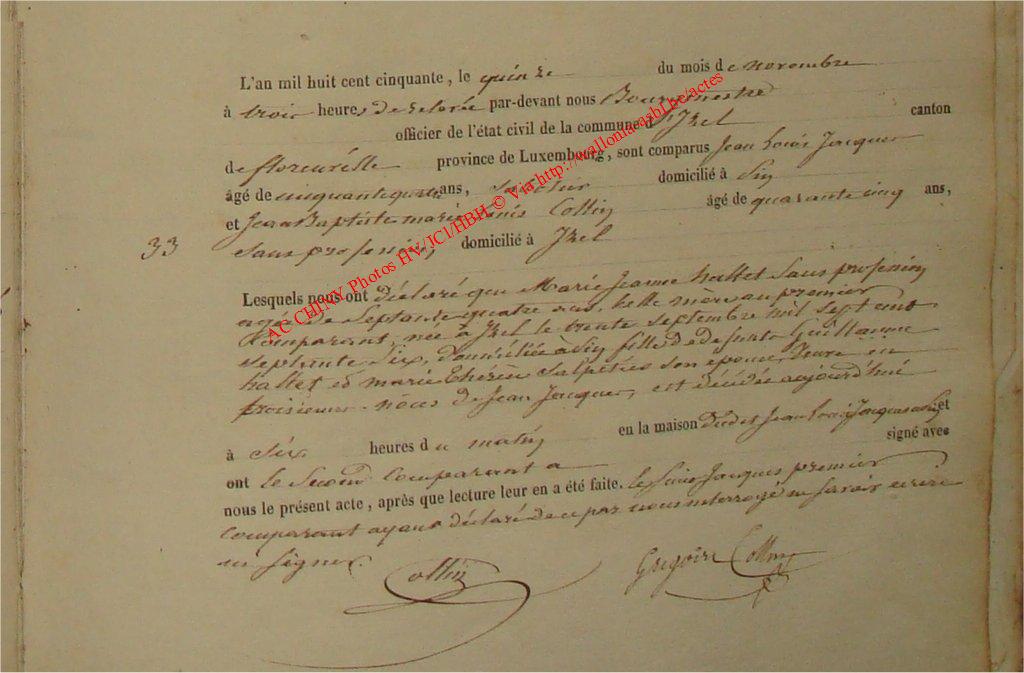 L'an mil huit cent cinquante, le quinze du mois de novembre
à trois heures de relevée par-devant nous Bourgmestre
officier de l'état civil de la commune d'Izel canton
de florenville province de Luxembourg, sont comparus Jean Louis Jacques
âgé de cinquante quatre ans, domicilié à Sin
et Jean Baptiste marie Denis Collin âgé de quarante cinq ans,
33 sans profession, domicilié à Izel
Lesquels nous ont déclaré que Marie Jeanne hallet sans profession
agée de septante quatre ans, belle mere au premier
comparant, née à Izel le trente septembre mil sept cent
septante six, domiciliée à Sin fille de defunts Guillaume
hallet et marie thérèse son epouse, veuve en
troisiemes noces de Jean Jacques, est décédée aujourd'hui
à six heures du matin en la maison dudit Jean Louis Jacques à Sin et
ont le second comparant a signé avec
nous le présent acte, après que lecture leur en a été faite. le Sieur Jacques premier
comparant ayant déclaré de ce par nous interrogé ne savoir écrire
ni signer.
Collin Grégoire Collin
AC CHINY Photos HV/JCl/HBH © Via http://walloniacasbl.be/actes